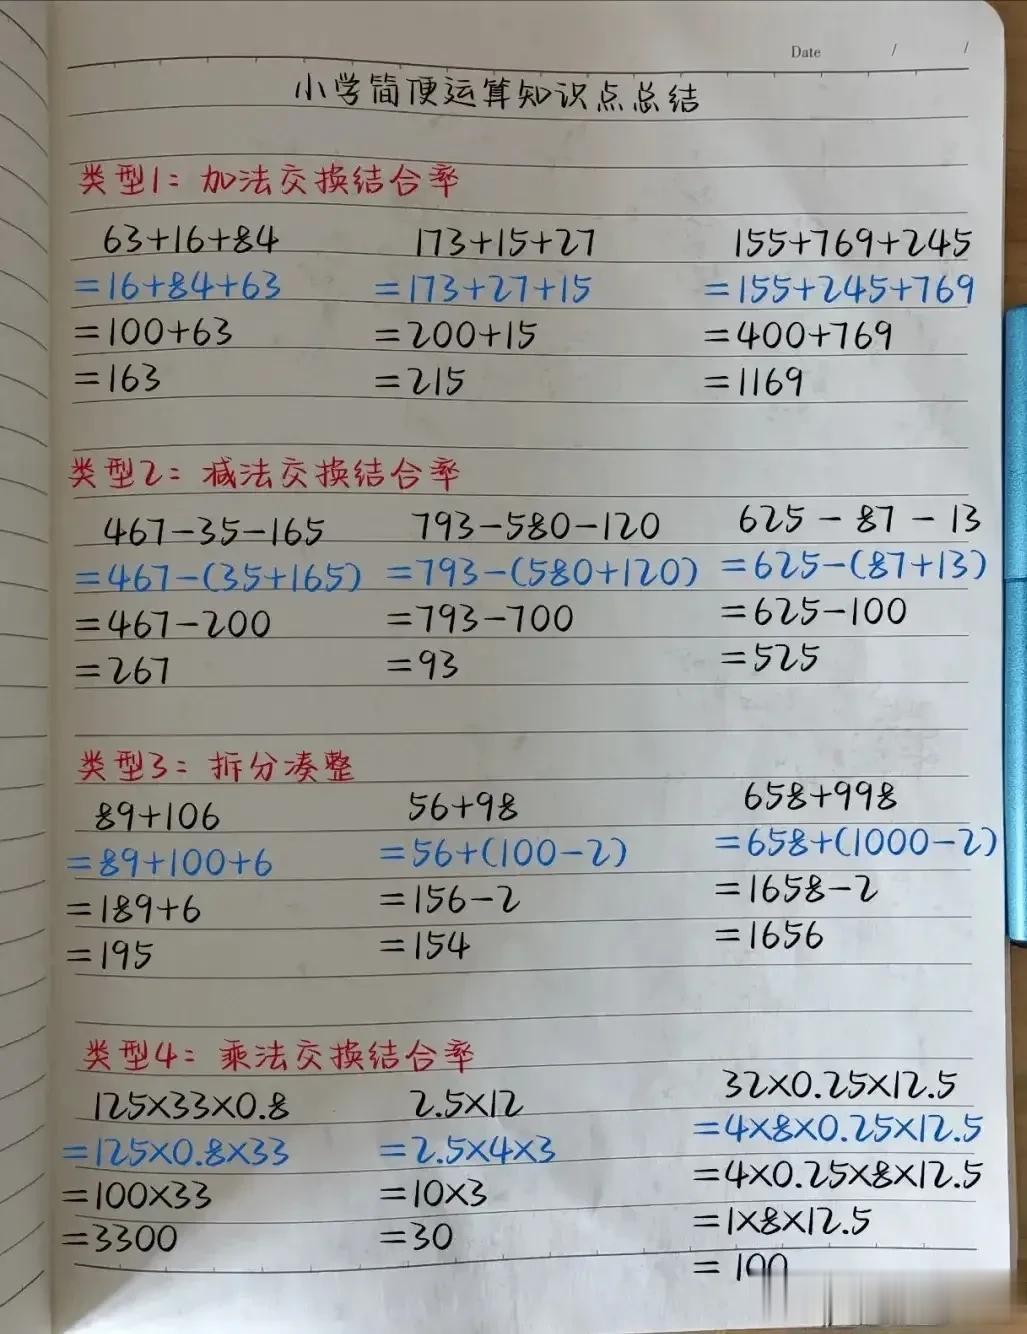 Date / /
小学简便运算知识点总结
类型1：加法交换结合率
63+16+84
=16+84+63
=100+63
=163
173+15+27
=173+27+15
=200+15
=215
155+769+245
=155+245+769
=400+769
=1169
类型2：减法交换结合率
467-35-165
=467-(35+165)
=467-200
=267
793-580-120
=793-(580+120)
=793-700
=93
625-87-13
=625-(87+13)
=625-100
=525
类型3：拆分凑整
89+106
=89+100+6
=189+6
=195
56+98
=56+(100-2)
=156-2
=154
658+998
=658+(1000-2)
=1658-2
=1656
类型4：乘法交换结合率
125×33×0.8
=125×0.8×33
=100×33
=3300
2.5×12
=2.5×4×3
=10×3
=30
32×0.25×12.5
=4×8×0.25×12.5
=4×0.25×8×12.5
=1×8×12.5
=100